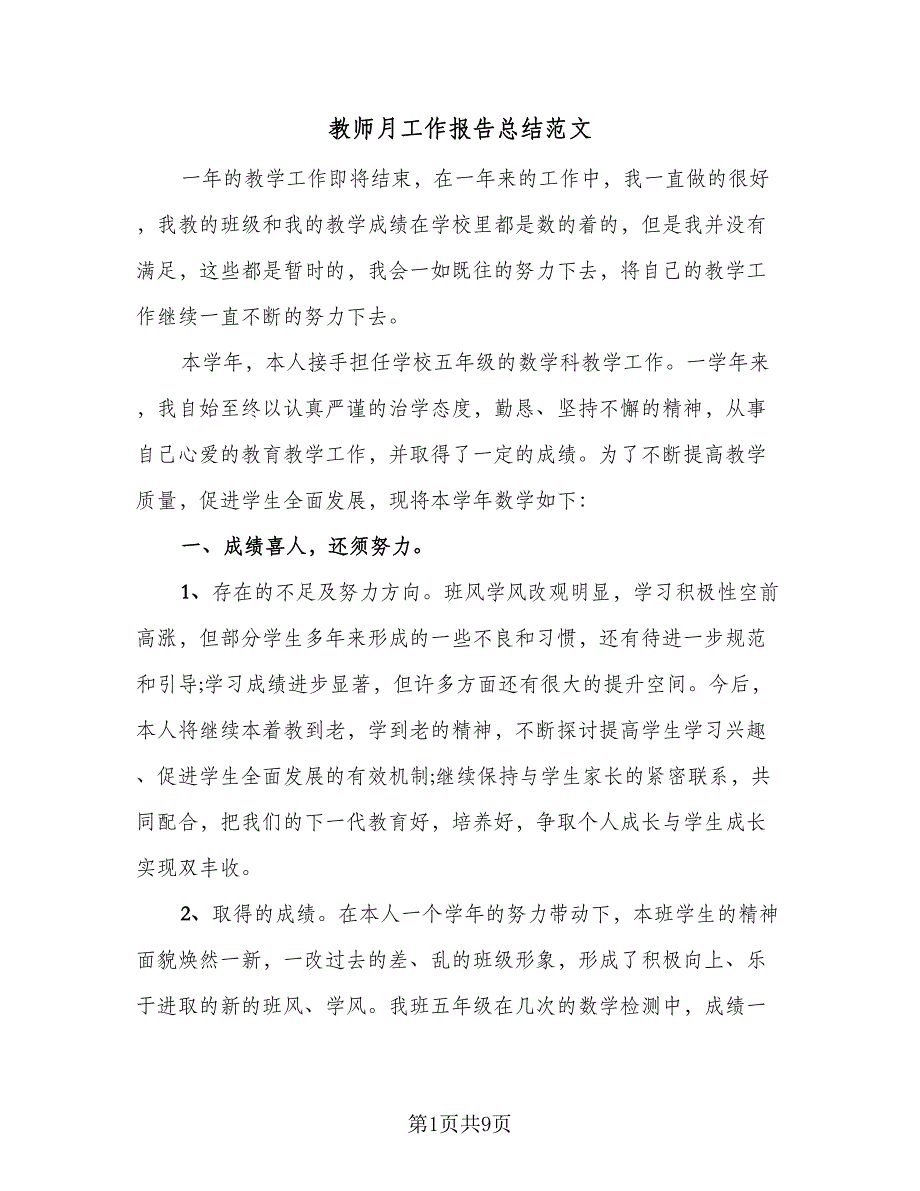 教师月工作报告总结范文
一年的教学工作即将结束，在一年来的工作中，我一直做的很好
，我教的班级和我的教学成绩在学校里都是数的着的，但是我并没有
满足，这些都是暂时的，我会一如既往的努力下去，将自己的教学工
作继续一直不断的努力下去。
本学年，本人接手担任学校五年级的数学科教学工作。一学年来
，我自始至终以认真严谨的治学态度，勤恳、坚持不懈的精神，从事
自己心爱的教育教学工作，并取得了一定的成绩。为了不断提高教学
质量，促进学生全面发展，现将本学年数学如下：
一、成绩喜人，还须努力。
1、存在的不足及努力方向。班风学风改观明显，学习积极性空前
高涨，但部分学生多年来形成的一些不良和习惯，还有待进一步规范
和引导;学习成绩进步显著，但许多方面还有很大的提升空间。今后，
本人将继续本着教到老，学到老的精神，不断探讨提高学生学习兴趣
、促进学生全面发展的有效机制;继续保持与学生家长的紧密联系，共
同配合，把我们的下一代教育好，培养好，争取个人成长与学生成长
实现双丰收。
2、取得的成绩。在本人一个学年的努力带动下，本班学生的精神
面貌焕然一新，一改过去的差、乱的班级形象，形成了积极向上、乐
于进取的新的班风、学风。我班五年级在几次的数学检测中，成绩一
第1页共9页